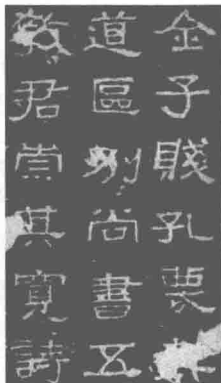 金子賤孔蔑其
道區別尚書五
教君崇其寬詩